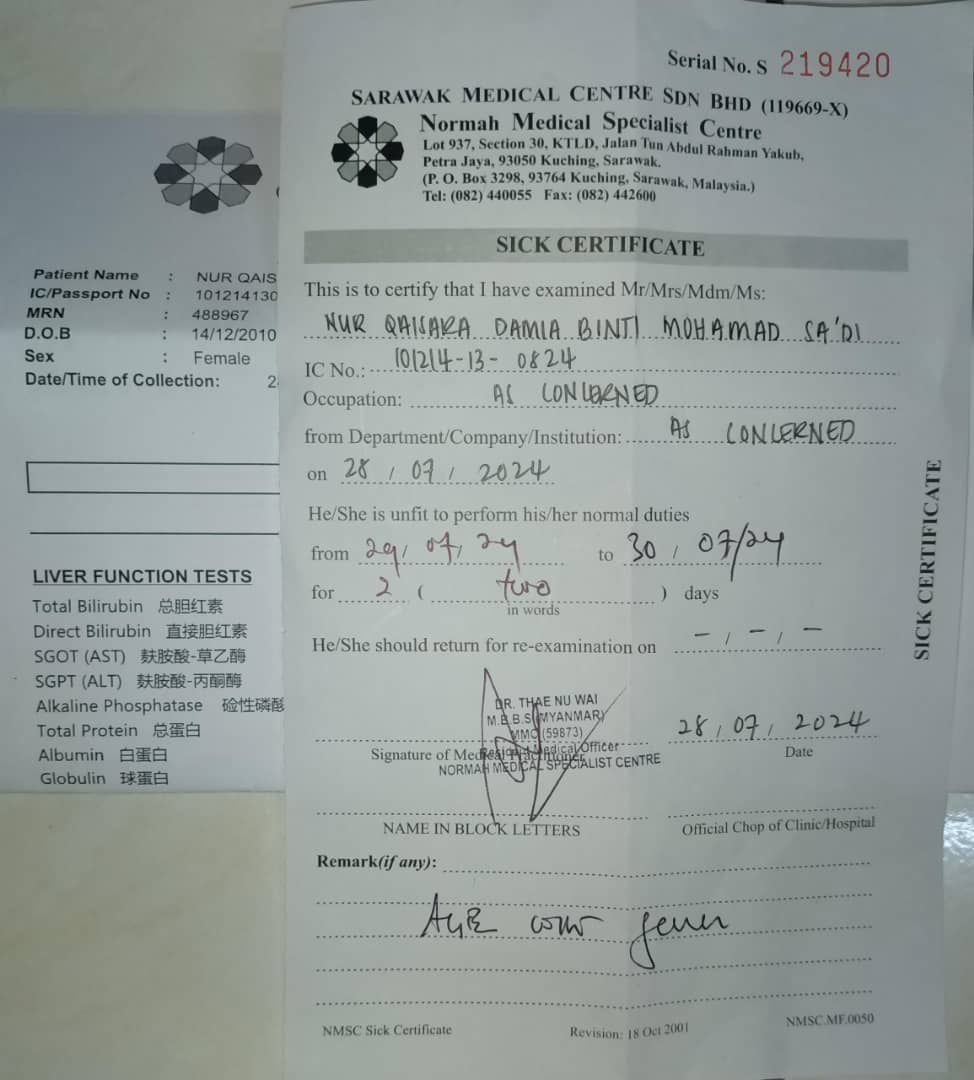 Patient Name : NUR QAIS
IC/Passport No : 101214130
MRN : 488967
D.O.B : 14/12/2010
Sex : Female
Date/Time of Collection: 2
LIVER FUNCTION TESTS
Total Bilirubin 总胆红素
Direct Bilirubin 直接胆红素
SGOT (AST) 麸胺酸-草乙酶
SGPT (ALT) 麸胺酸-丙酮酶
Alkaline Phosphatase 硷性磷酸
Total Protein 总蛋白
Albumin 白蛋白
Globulin 球蛋白
Serial No. S 219420
SARAWAK MEDICAL CENTRE SDN BHD (119669-X)
Normah Medical Specialist Centre
Lot 937, Section 30, KTLD, Jalan Tun Abdul Rahman Yakub,
Petra Jaya, 93050 Kuching, Sarawak.
(P. O. Box 3298, 93764 Kuching, Sarawak, Malaysia.)
Tel: (082) 440055 Fax: (082) 442600
SICK CERTIFICATE
This is to certify that I have examined Mr/Mrs/Mdm/Ms:
NUR QAISARA DAMIA BINTI MOHAMAD SA'DI
IC No.: 101214-13-0824
Occupation: AS CONCERNED
from Department/Company/Institution: AS CONCERNED
on 28 / 07 / 2024
He/She is unfit to perform his/her normal duties
from 29 / 07 / 24 to 30 / 07/24
for 2 ( two ) days
in words
He/She should return for re-examination on - / - / -
DR. THAE NU WAI
M.B.B.S (MYANMAR)
MMC (59873)
Resident Medical Officer
NORMAH MEDICAL SPECIALIST CENTRE
28 / 07 / 2024
Signature of Medical Practitioner
Date
NAME IN BLOCK LETTERS
Official Chop of Clinic/Hospital
Remark(if any):
AGE with fever
NMSC Sick Certificate
Revision: 18 Oct 2001
NMSC.MF.0050
SICK CERTIFICATE